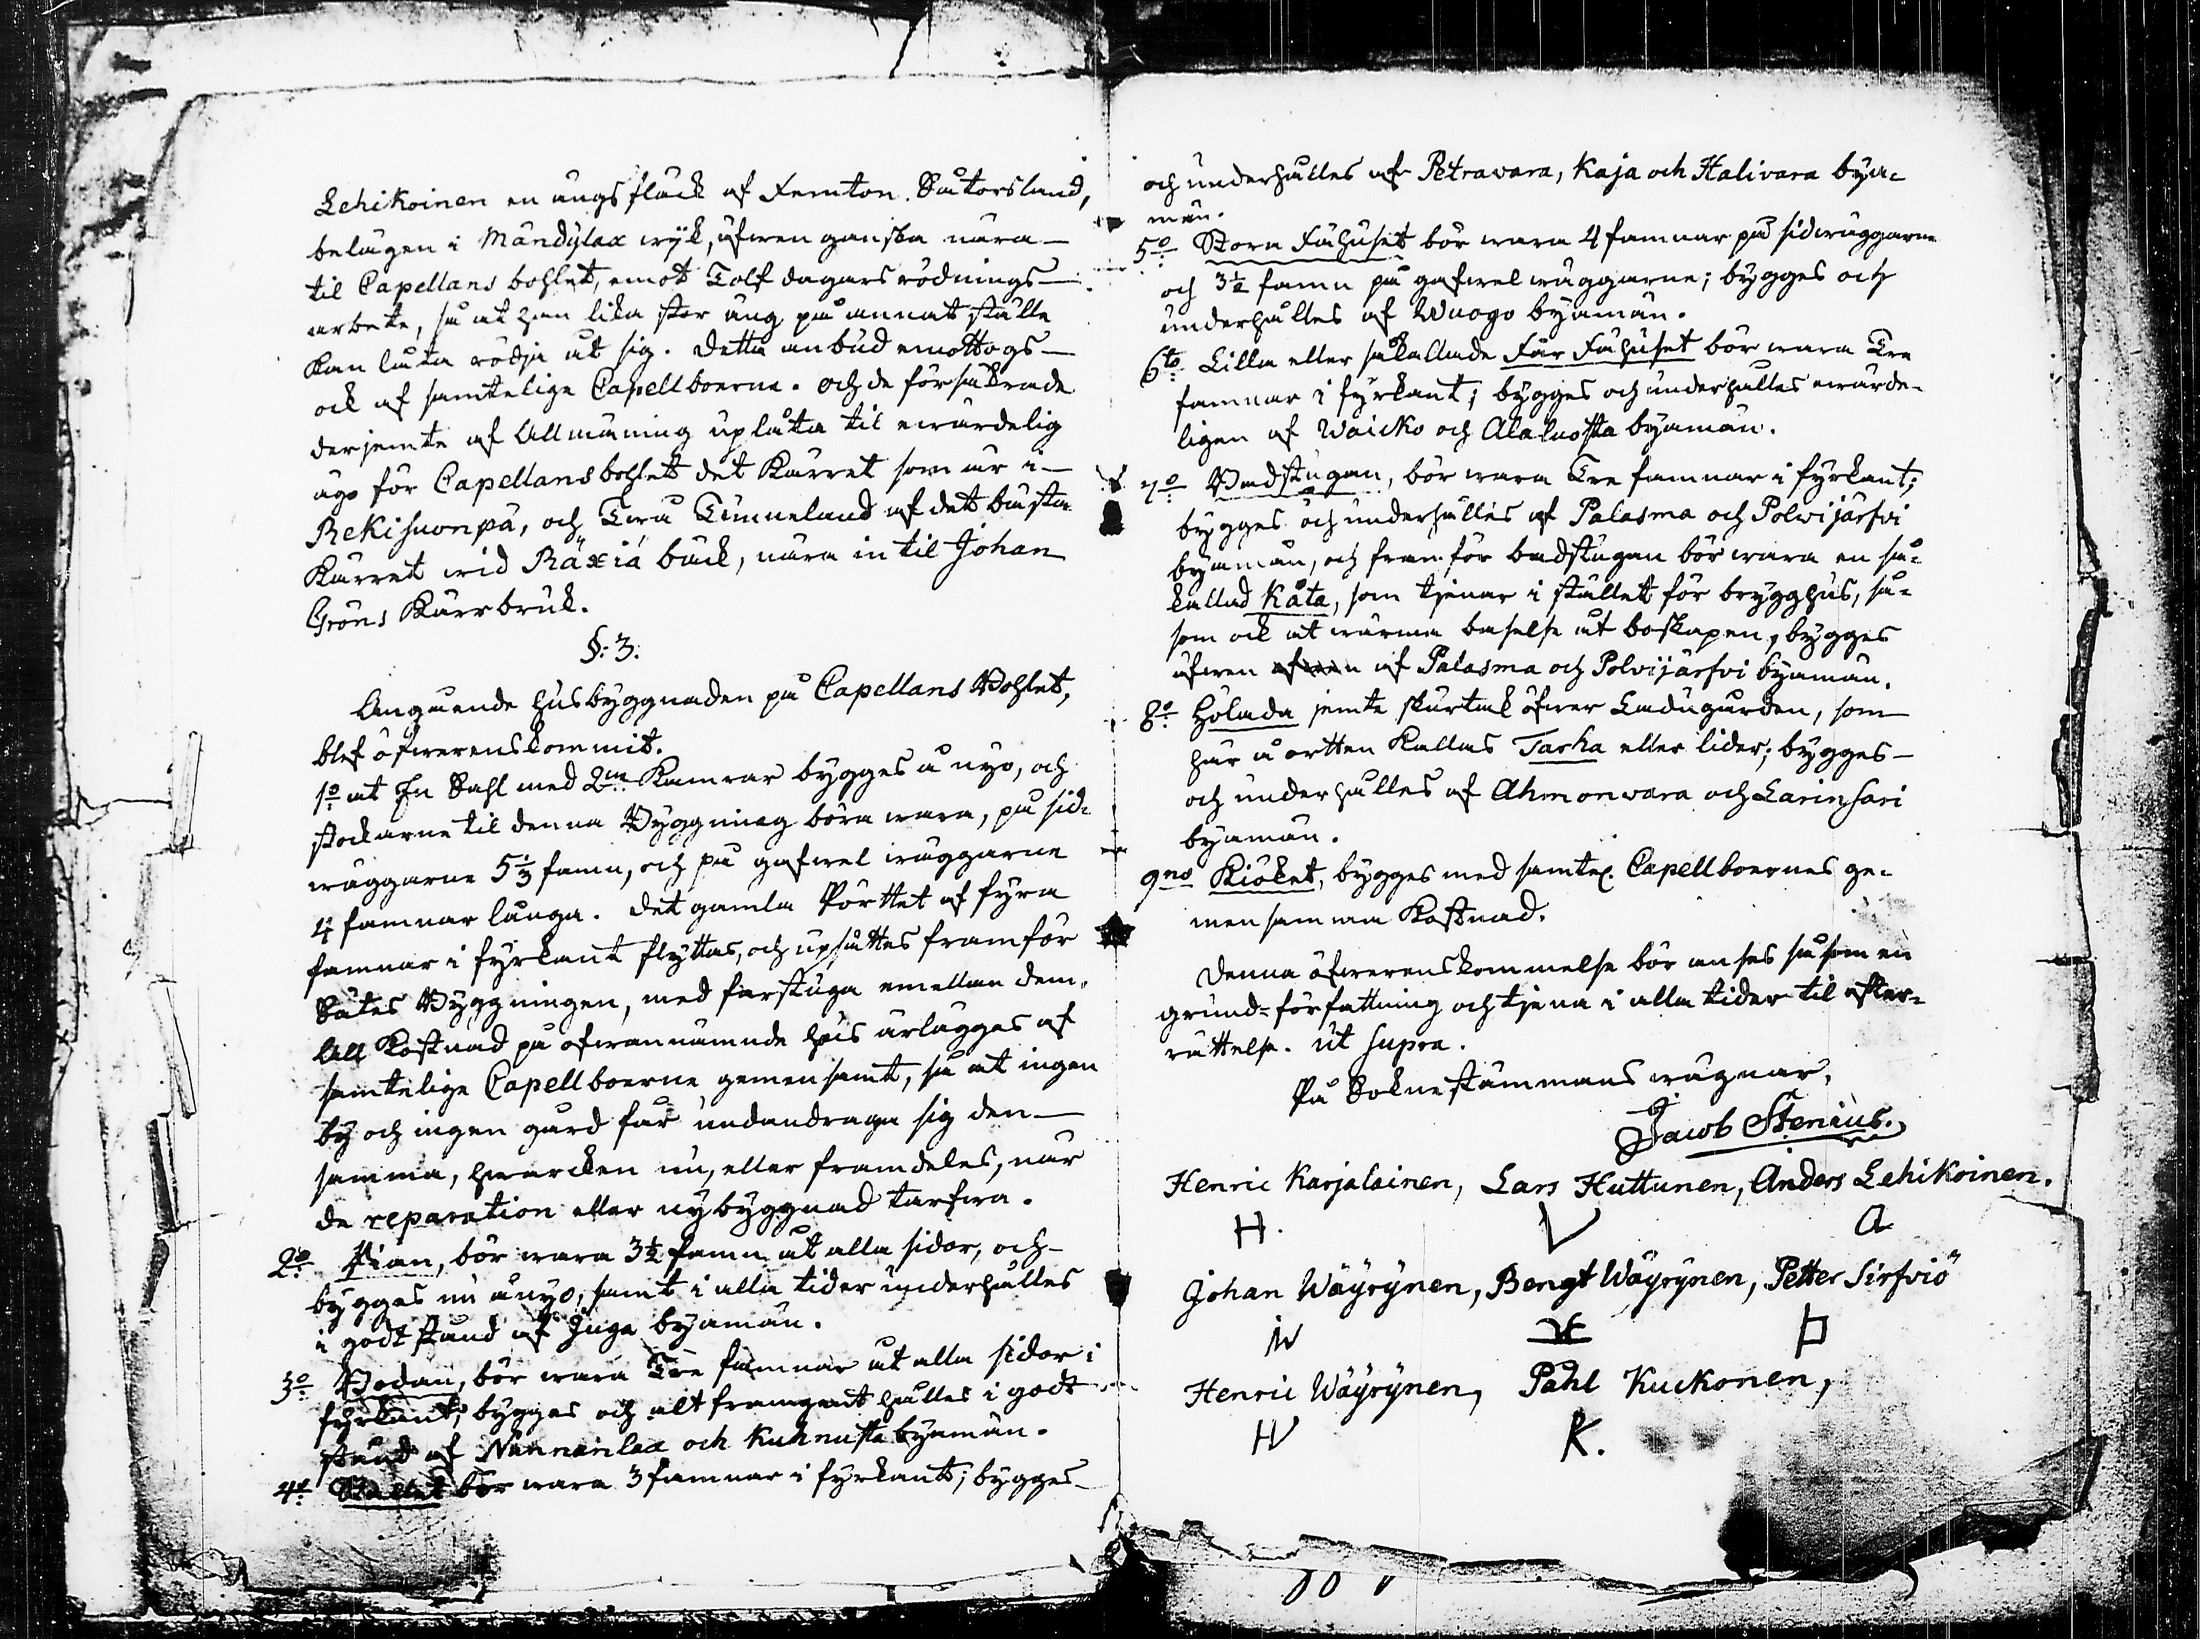 Lehikoinen en ängsfläck af Femton Såtorsland,
belägen i Mändylax wyk, äfwen ganska nära
til Capellans bohlet, emot Tolf dagars rödnings-
arbete, så at han lika stor äng på annat ställe
kan låta rödja åt sig. Detta anbud emottogs
ock af samtelige Capellboerne. Och de försäkrade
derjemte af Allmäning uplåta til ewärdelig
ägo för Capellansbohlet det Kärret som är i
Rekisuonpä, och Twå Tunneland af det bästa
Kärret wid Räxiä bäck, nära in til Johan
Gröns Kärrbruk.
§: 3.
Angående husbyggnaden på Capellans Bohlet,
blef öfwerenskommit.
1o at En Sahl med 2ne Kamrar bygges å nyo, och
stockarne til denna Byggning böra wara, på sid-
wäggarne 5 1/3 famn, och på gafwel wäggarne
4 famnar långa. Det gamla Pörttet af fyra
famnar i fyrkant flyttas, och upsättes framför
Sätes Byggningen, med farstuga emellan dem.
All Kostnad på ofwannämnde hus ärlägges af
samtelige Capellboerne gemensamt, så at ingen
by och ingen gård får undandraga sig den-
samma, hwarcken nu, eller framdeles, när
de reparation eller nybyggnad tarfwa.
2o Rian, bör wara 3 1/2 famn åt alla sidor, och
bygges nu ånyo, samt i alla tider underhålles
i godt stånd af Juga byamän.
3o Bodan, bör wara Tre famnar åt alla sidor i
fyrkant; bygges och alt framgent hålles i godt
stånd af Nunnanlax och Kuhnusta byamän.
4o Stallet bör wara 3 famnar i fyrkant; bygges
och underhålles af Petravara, Kaja och Halivara bya-
män.
5o Stora Fähuset bör wara 4 famnar på sidwäggarne
och 3 1/2 famn på gafwelwäggarne; bygges och
underhålles af Wuogo byamän.
6to Lilla eller såkallade Får Fähuset bör wara Tre
famnar i fyrkant; bygges och underhålles ewärde-
ligen af Waicko och Alaluosta byamän.
7o Badstugan, bör wara Tre famnar i fyrkant;
bygges och underhålles af Palasma och Polwijärfvi
byamän, och framför badstugan bör wara en så-
kallad Kåta, som tjenar i stället för brygghus, så-
som ock at wärma baselse åt boskapen, bygges
äfwen af Palasma och Polvijärfvi byamän.
8o Hölada jemte skurtak öfwer Ladugården, som
här å ortten Kallas Tarha eller lider; bygges
och underhålles af Ahmonwara och Larinsari
byamän.
9no Kiöket, bygges med samtel. Capellboernes ge-
mensamma Kostnad.
Denna öfwerenskommelse bör anses såsom en
grund-författning och tjena i alla tider til efter-
rättelse. Ut supra.
På Sokne stämmans wägnar,
Jacob Stenius.
Henric Karjalainen, Lars Huttunen, Anders Lehikoinen.
H. L A
Johan Wäyrynen, Bengt Wäyrynen, Petter Sirfviö
IW P
Henric Wäyrynen, Påhl Kuckonen,
HW K.